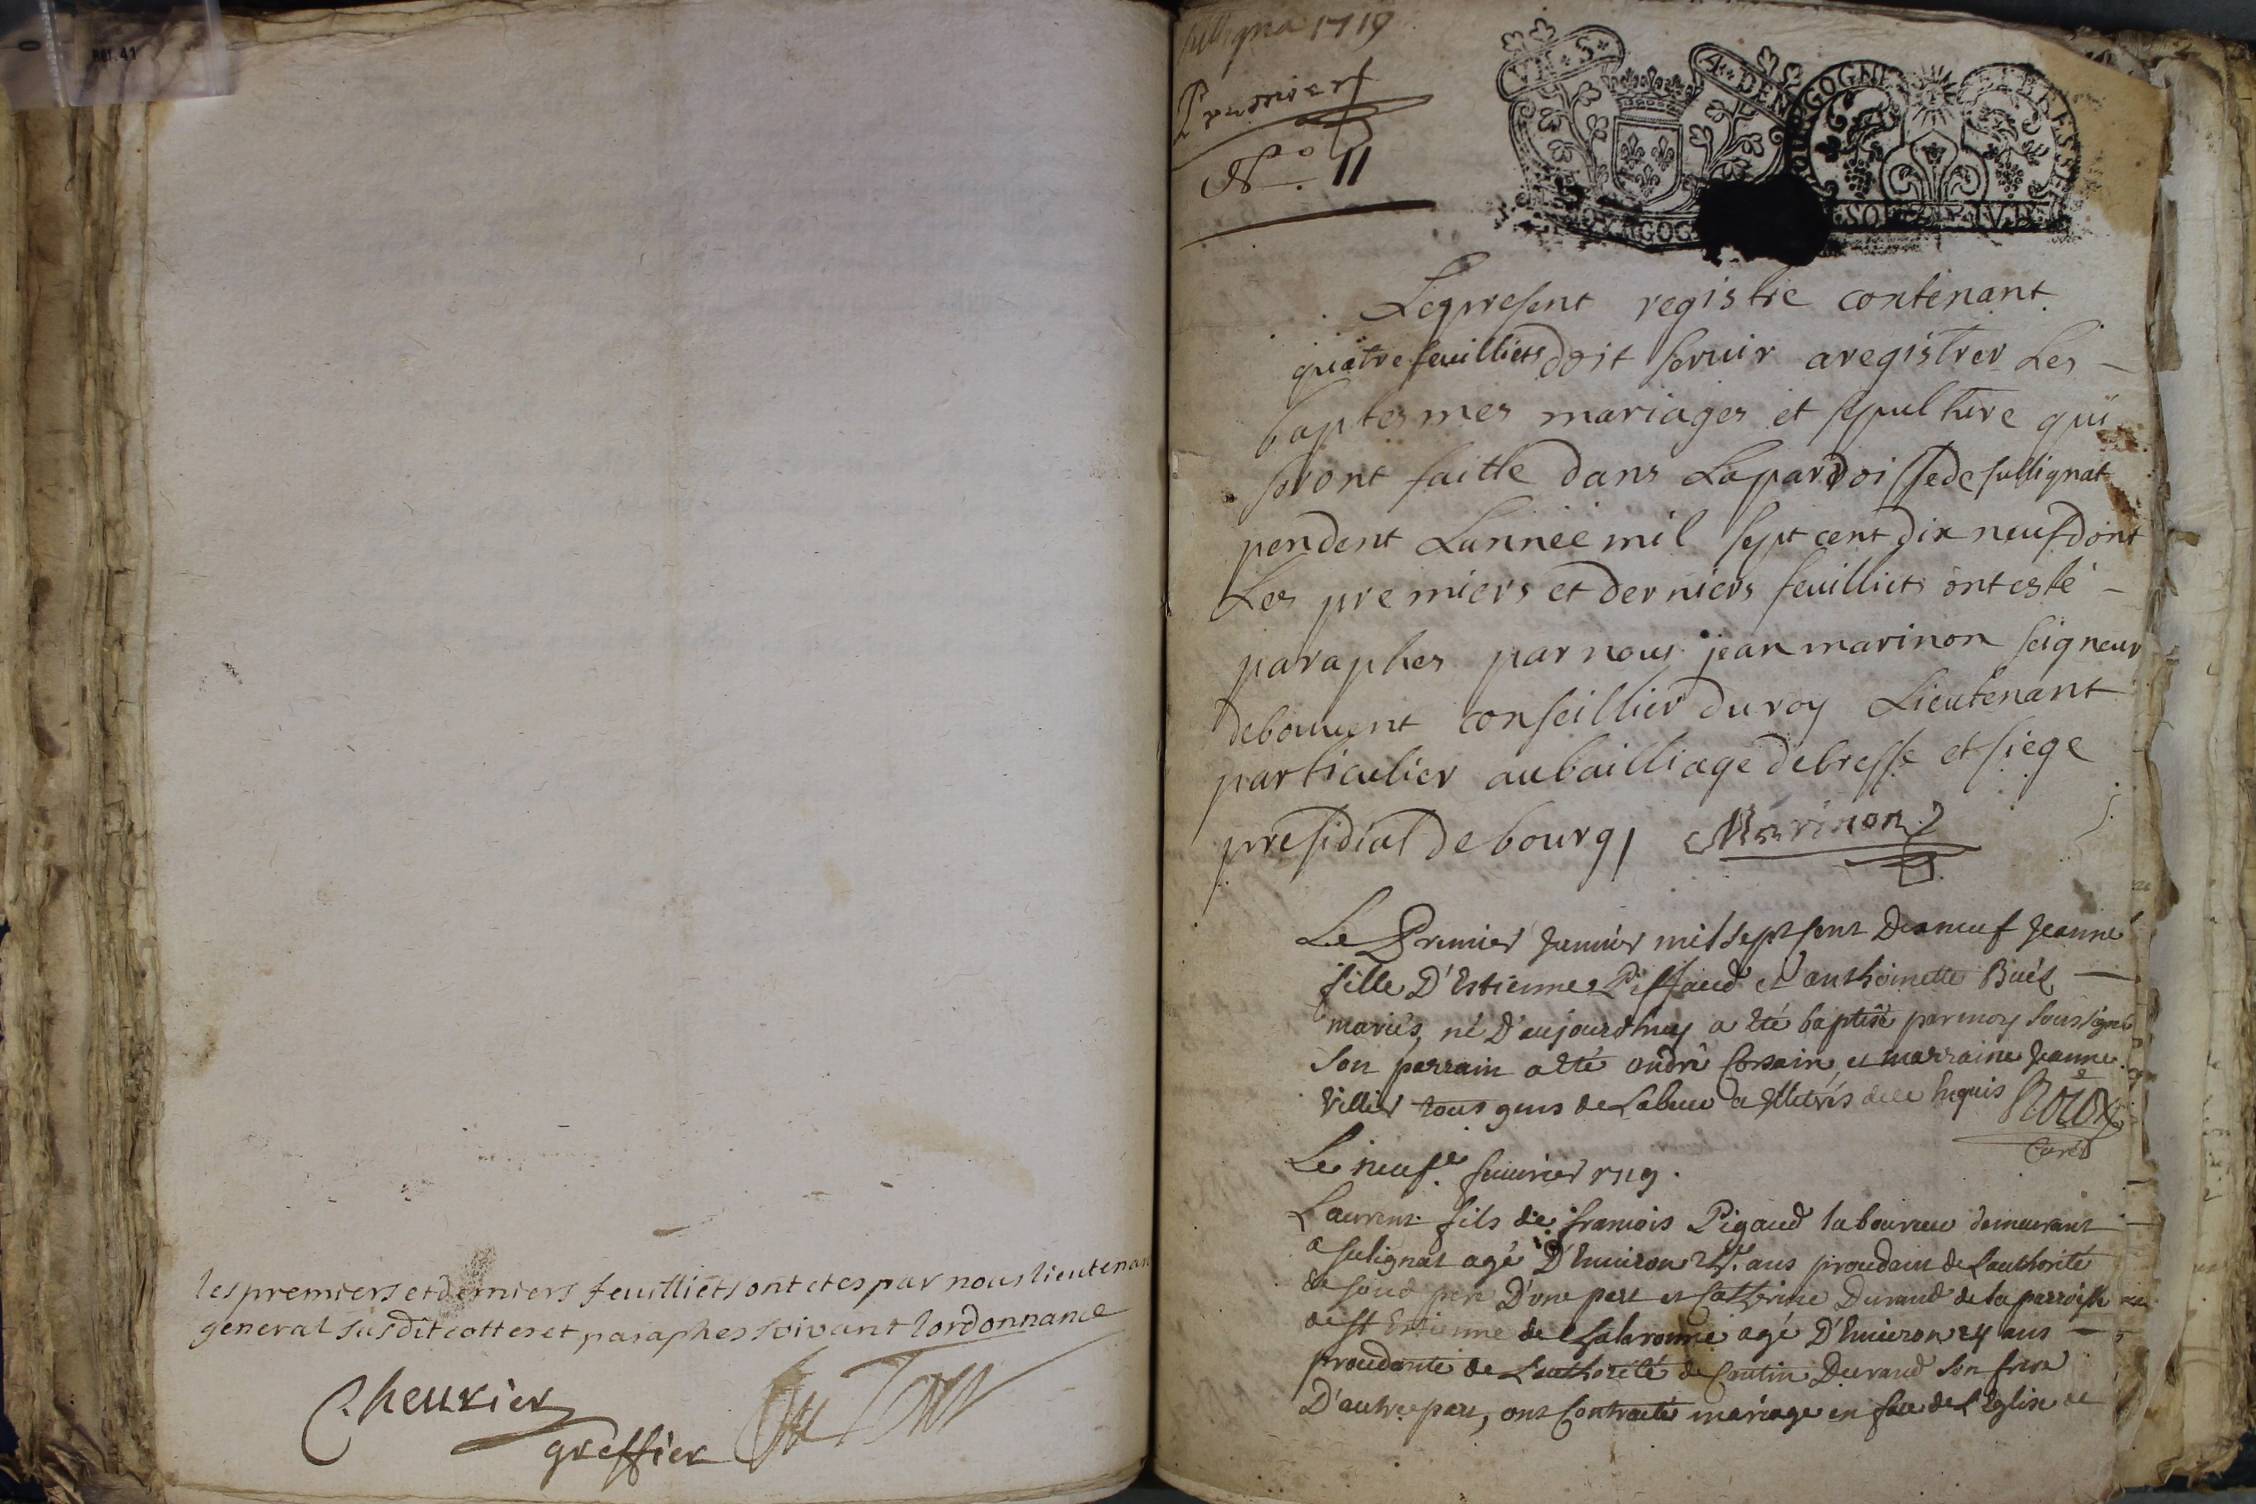 Ref. 41
les premiers et derniers feuilliets ont etes par nous lieutenan
general susdit cottes et paraphes suivant lordonnance
Cheurier
greffier
1719
Premier
N.º 11
VI·S·
A·DEN
BOURGOGNE ET BRESSE
SOL
Le present registre contenant
quatre feuilliets doit seruir a registrer Les
baptesmes mariages et sepulture qui
seront faitte dans La paroisse de sullignat
pendent Lannée mil sept cent dix neuf dont
Les premiers et derniers feuilliets ont esté
paraphes par nous jean marinon seigneur
de bouuent conseillier du roy Lieutenant
particulier au bailliage de bresse et siege
presidial de bourg Marinon
Le Premier Januier mil sept sent Dixneuf Jeanne
fille D'Estienne Piffaud et anthoinette Buet
mariés, né D'aujourdhuy a été baptisé par moy soussigné
son parrain a été andré Corsain, et marraine Jeanne
Villier tous gens de Labeur Illitrés de ce Inquis Roux
Curé
Le neuf.e feurier 1719.
Laurent fils de francois Pigaud laboureur demeurant
a sulignat agé D'Enuiron ans proudant de Lauthorité
de soud pere D'une part et Catherine Durand de la parroisse
de St Estienne de Chalaronne agé D'Enuiron 24 ans
proudante de Lauthorité de Durand son frere
D'autre part, ont Contracté mariage en face de L'Eglise de